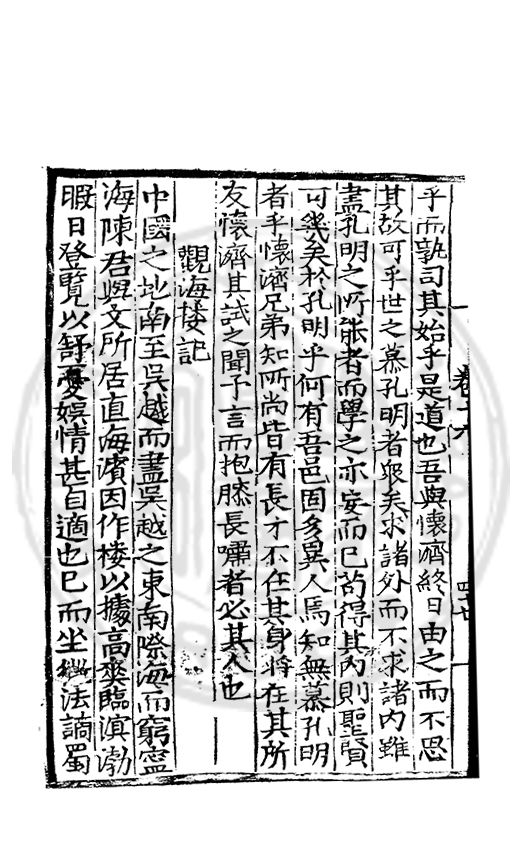 卷十六
四十七
乎而孰司其始乎是道也吾與懷濟終日由之而不思
其故可乎世之慕孔明者眾矣求諸外而不求諸内雖
盡孔明之所能者而學之亦安而已苟得其内則聖賢
可幾矣於孔明乎何有吾邑固多異人焉知無慕孔明
者乎懷濟兄弟知所尚皆有長才不在其身將在其所
友懷濟其試之聞予言而抱膝長嘯者必其人也
觀海楼記
中國之地南至吳越而盡吳越之東南際海而窮寧
海陳君與文所居直海濱因作楼以據高爽臨滇渤
暇日登覽以舒憂娯情甚自適也已而坐 法謫蜀